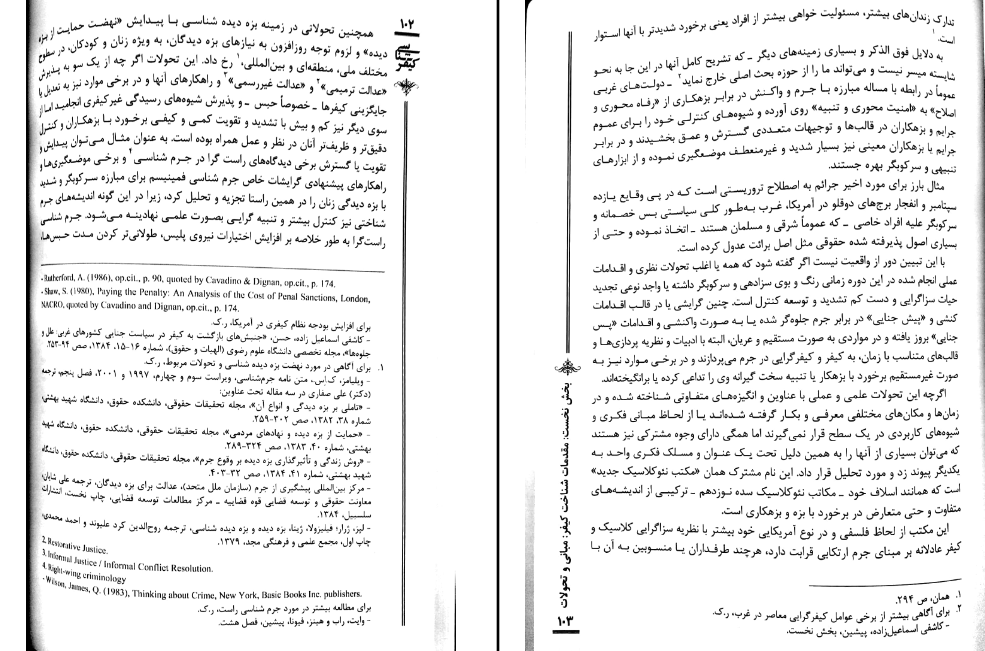 ۱۰۲
کیفر
همچنین تحولاتی در زمینه بزه دیده شناسی با پیدایش «نهضت حمایت از بزه
دیده» و لزوم توجه روزافزون به نیازهای بزه دیدگان، به ویژه زنان و کودکان، در سطوح
مختلف ملی، منطقه‌ای و بین‌المللی،۱ رخ داد. این تحولات اگر چه از یک سو به پذیرش
«عدالت ترمیمی»۲ و «عدالت غیررسمی»۳ و راهکارهای آنها و در برخی موارد نیز به تعدیل یا
جایگزینی کیفرها - خصوصاً حبس - و پذیرش شیوه‌های رسیدگی غیرکیفری انجامید اما از
سوی دیگر نیز کم و بیش با تشدید و تقویت کمی و کیفی برخورد با بزهکاران و کنترل
دقیق‌تر و ظریف‌تر آنان در نظر و عمل همراه بوده است. به عنوان مثال می‌توان پیدایش و
تقویت یا گسترش برخی دیدگاه‌های راست گرا در جرم شناسی۴ و برخی موضعگیری‌ها و
راهکارهای پیشنهادی گرایشات خاص جرم شناسی فمینیسم برای مبارزه سرکوبگر و شدید
با بزه دیدگی زنان را در همین راستا تجزیه و تحلیل کرد، زیرا در این گونه اندیشه‌های جرم
شناختی نیز کنترل بیشتر و تنبیه گرایی بصورت علمی نهادینه می‌شود. جرم شناسی
راست‌گرا به طور خلاصه بر افزایش اختیارات نیروی پلیس، طولانی‌تر کردن مدت حبس‌ها،
- Rutherford, A. (1986), op.cit., p. 90, quoted by Cavadino & Dignan, op.cit., p. 174.
- Shaw, S. (1980), Paying the Penalty: An Analysis of the Cost of Penal Sanctions, London,
NACRO, quoted by Cavadino and Dignan, op.cit., p. 174.
برای افزایش بودجه نظام کیفری در آمریکا، ر.ک.
- کاشفی اسماعیل زاده، حسن، «جنبش‌های بازگشت به کیفر در سیاست جنایی کشورهای غربی: علل و
جلوه‌ها»، مجله تخصصی دانشگاه علوم رضوی (الهیات و حقوق)، شماره ۱۶-۱۵، ۱۳۸۴، صص ۹۴-۲۵۳.
۱. برای آگاهی در مورد نهضت بزه دیده شناسی و تحولات مربوط، ر.ک.
- ویلیامز، ک.اس، متن نامه جرم‌شناسی، ویراست سوم و چهارم، ۱۹۹۷ و ۲۰۰۱، فصل پنجم، ترجمه
(دکتر) علی صفاری در سه مقاله تحت عناوین:
- «تاملی بر بزه دیدگی و انواع آن»، مجله تحقیقات حقوقی، دانشکده حقوق، دانشگاه شهید بهشتی،
شماره ۳۸، ۱۳۸۲، صص ۳۰۲-۲۵۹.
- «حمایت از بزه دیده و نهادهای مردمی»، مجله تحقیقات حقوقی، دانشکده حقوق، دانشگاه شهید
بهشتی، شماره ۴۰، ۱۳۸۳، صص ۳۲۴-۲۸۹.
- «روش زندگی و تأثیرگذاری بزه دیده بر وقوع جرم»، مجله تحقیقات حقوقی، دانشکده حقوق، دانشگاه
شهید بهشتی، شماره ۴۱، ۱۳۸۴، صص ۳۲-۴۰۳.
- مرکز بین‌المللی پیشگیری از جرم (سازمان ملل متحد)، عدالت برای بزه دیدگان، ترجمه علی شایان،
معاونت حقوقی و توسعه قضایی قوه قضاییه - مرکز مطالعات توسعه قضایی، چاپ نخست، انتشارات
سلسبیل، ۱۳۸۴.
- لپز، ژرار؛ فیلیزولا، ژینا، بزه دیده و بزه دیده شناسی، ترجمه روح‌الدین کرد علیوند و احمد محمدی،
چاپ اول، مجمع علمی و فرهنگی مجد، ۱۳۷۹.
2. Restorative Justice.
3. Informal Justice / Informal Conflict Resolution.
4. Right-wing criminology
- Wilson, James, Q. (1983), Thinking about Crime, New York, Basic Books Inc. publishers.
برای مطالعه بیشتر در مورد جرم شناسی راست، ر.ک.
- وایت، راب و هینز، فیونا، پیشین، فصل هشت.
تدارک زندان‌های بیشتر، مسئولیت خواهی بیشتر از افراد یعنی برخورد شدیدتر با آنها استوار
است.۱
به دلایل فوق الذکر و بسیاری زمینه‌های دیگر - که تشریح کامل آنها در این جا به نحو
شایسته میسر نیست و می‌تواند ما را از حوزه بحث اصلی خارج نماید۲ - دولت‌های غربی
عموماً در رابطه با مساله مبارزه با جرم و واکنش در برابر بزهکاری از «رفاه محوری و
اصلاح» به «امنیت محوری و تنبیه» روی آورده و شیوه‌های کنترلی خود را برای عموم
جرایم و بزهکاران در قالب‌ها و توجیهات متعددی گسترش و عمق بخشیدند و در برابر
جرایم یا بزهکاران معینی نیز بسیار شدید و غیرمنعطف موضعگیری نموده و از ابزارهای
تنبیهی و سرکوبگر بهره جستند.
مثال بارز برای مورد اخیر جرائم به اصطلاح تروریستی است که در پی وقایع یازده
سپتامبر و انفجار برج‌های دوقلو در آمریکا، غرب به‌طور کلی سیاستی بس خصمانه و
سرکوبگر علیه افراد خاصی - که عموماً شرقی و مسلمان هستند - اتخاذ نموده و حتی از
بسیاری اصول پذیرفته شده حقوقی مثل اصل برائت عدول کرده است.
با این تبیین دور از واقعیت نیست اگر گفته شود که همه یا اغلب تحولات نظری و اقدامات
عملی انجام شده در این دوره زمانی رنگ و بوی سزادهی و سرکوبگر داشته یا واجد نوعی تجدید
حیات سزاگرایی و دست کم تشدید و توسعه کنترل است. چنین گرایشی یا در قالب اقدامات
کنشی و «پیش جنایی» در برابر جرم جلوه‌گر شده یا به صورت واکنشی و اقدامات «پس
جنایی» بروز یافته و در مواردی به صورت مستقیم و عریان، البته با ادبیات و نظریه پردازی‌ها و
قالب‌های متناسب با زمان، به کیفر و کیفرگرایی در جرم می‌پردازند و در برخی موارد نیز به
صورت غیرمستقیم برخورد با بزهکار یا تنبیه سخت گیرانه وی را تداعی کرده یا برانگیخته‌اند.
اگرچه این تحولات علمی و عملی با عناوین و انگیزه‌های متفاوتی شناخته شده و در
زمان‌ها و مکان‌های مختلفی معرفی و بکار گرفته شده‌اند یا از لحاظ مبانی فکری و
شیوه‌های کاربردی در یک سطح قرار نمی‌گیرند اما همگی دارای وجوه مشترکی نیز هستند
که می‌توان بسیاری از آنها را به همین دلیل تحت یک عنوان و مسلک فکری واحد به
یکدیگر پیوند زد و مورد تحلیل قرار داد. این نام مشترک همان «مکتب نئوکلاسیک جدید»
است که همانند اسلاف خود - مکاتب نئوکلاسیک سده نوزدهم - ترکیبی از اندیشه‌های
متفاوت و حتی متعارض در برخورد با بزه و بزهکاری است.
این مکتب از لحاظ فلسفی و در نوع آمریکایی خود بیشتر با نظریه سزاگرایی کلاسیک و
کیفر عادلانه بر مبنای جرم ارتکابی قرابت دارد، هرچند طرفداران یا منسوبین به آن با
۱. همان، ص ۲۹۴.
۲. برای آگاهی بیشتر از برخی عوامل کیفرگرایی معاصر در غرب، ر.ک.
- کاشفی اسماعیل‌زاده، پیشین، بخش نخست.
بخش نخست: مقدمات شناخت کیفر: مبانی و تحولات
۱۰۳